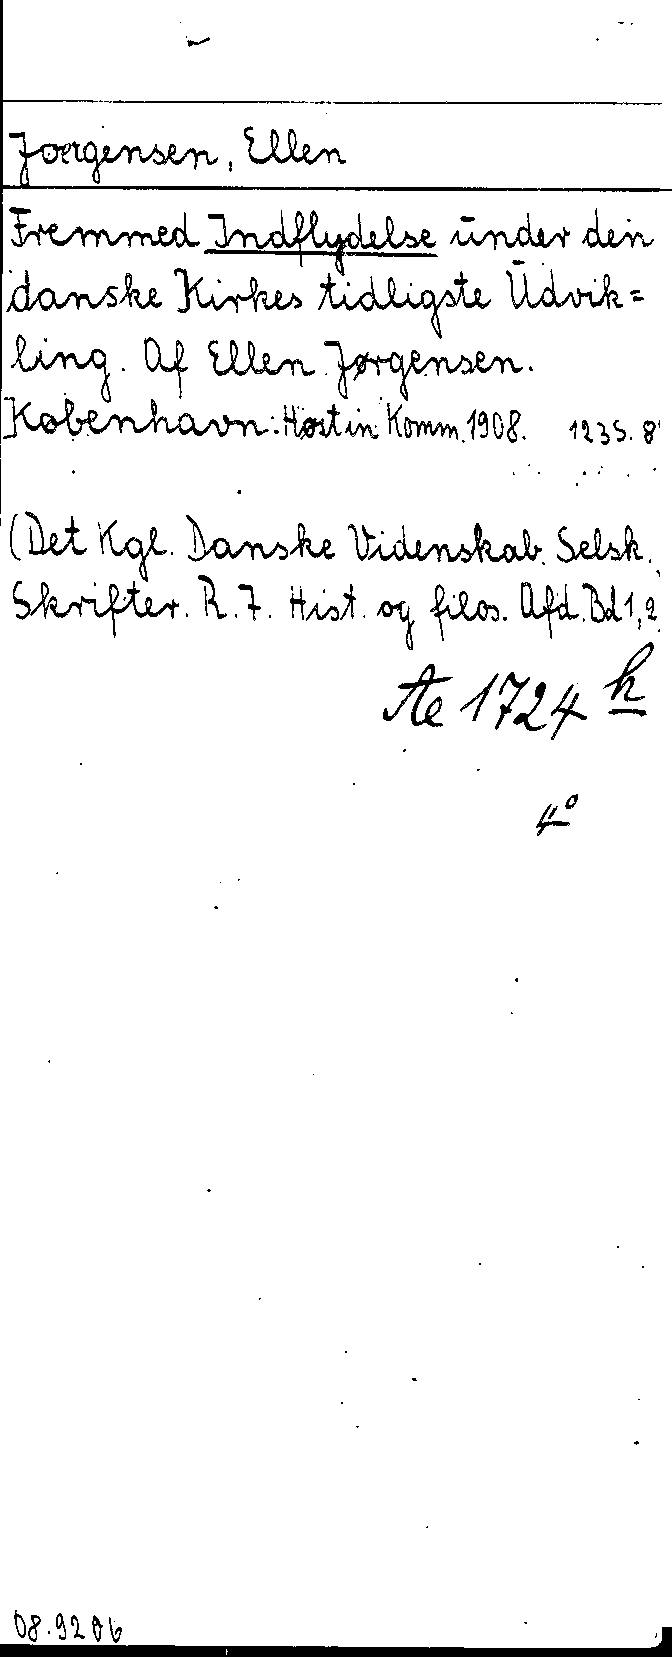 Joergensen, Ellen
Fremmed Indflydelse under den
danske Kirkes tidligste Udvik=
ling. Af Ellen Jørgensen.
København: Høst in Komm. 1908. 123 S. 8°
(Det Kgl. Danske Videnskab. Selsk.
Skrifter. R. 7. Hist. og filos. Afd. Bd 1,2
Ae 1724 h
4°
08.9206